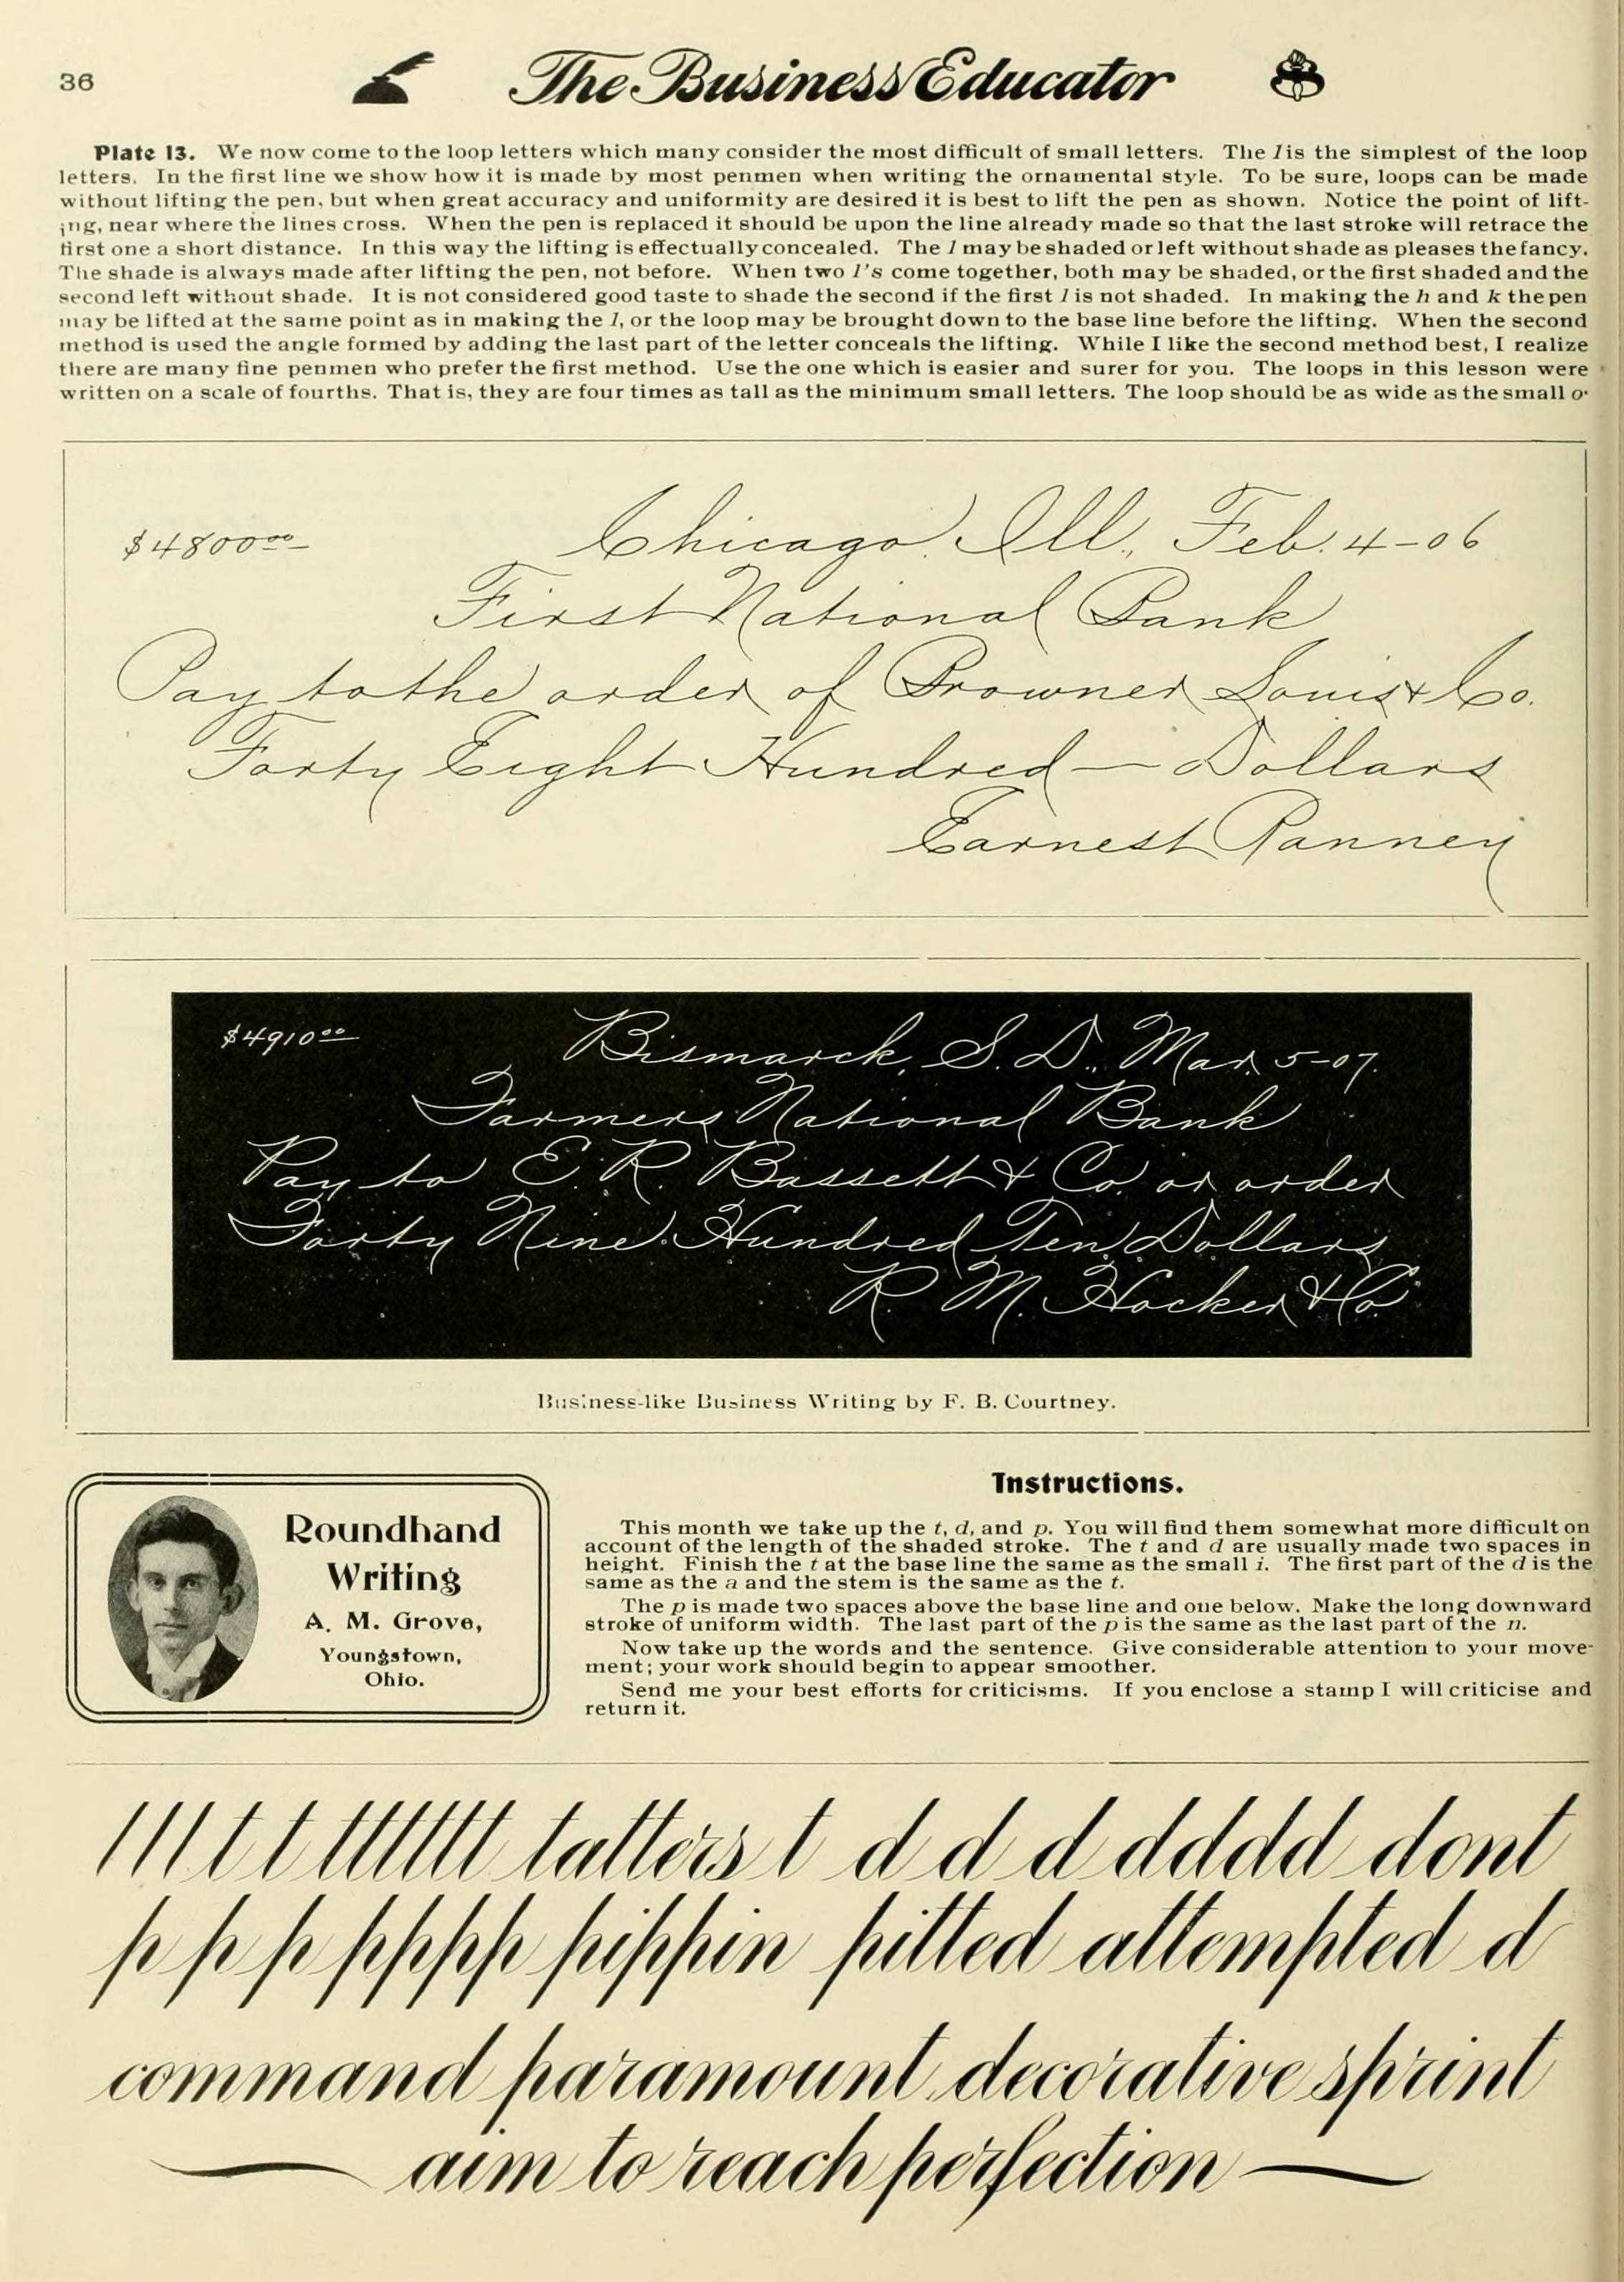 36
The Business Educator
Plate 13. We now come to the loop letters which many consider the most difficult of small letters. The l is the simplest of the loop
letters. In the first line we show how it is made by most penmen when writing the ornamental style. To be sure, loops can be made
without lifting the pen, but when great accuracy and uniformity are desired it is best to lift the pen as shown. Notice the point of lift-
ing, near where the lines cross. When the pen is replaced it should be upon the line already made so that the last stroke will retrace the
first one a short distance. In this way the lifting is effectually concealed. The l may be shaded or left without shade as pleases the fancy.
The shade is always made after lifting the pen, not before. When two l's come together, both may be shaded, or the first shaded and the
second left without shade. It is not considered good taste to shade the second if the first l is not shaded. In making the h and k the pen
may be lifted at the same point as in making the l, or the loop may be brought down to the base line before the lifting. When the second
method is used the angle formed by adding the last part of the letter conceals the lifting. While I like the second method best, I realize
there are many fine penmen who prefer the first method. Use the one which is easier and surer for you. The loops in this lesson were
written on a scale of fourths. That is, they are four times as tall as the minimum small letters. The loop should be as wide as the small o.
$4800.00 Chicago, Ill., Feb. 4-06
First National Bank
Pay to the order of Browner Louis & Co.
Forty Eight Hundred — Dollars
Earnest Ranney
$4910.00 Bismarck, S. D., Mar. 5-07.
Farmers National Bank
Pay to E. R. Bassett & Co. or order
Forty Nine Hundred Ten Dollars
R. M. Hocker & Co.
Business-like Business Writing by F. B. Courtney.
Roundhand
Writing
A. M. Grove,
Youngstown,
Ohio.
Instructions.
This month we take up the t, d, and p. You will find them somewhat more difficult on
account of the length of the shaded stroke. The t and d are usually made two spaces in
height. Finish the t at the base line the same as the small i. The first part of the d is the
same as the a and the stem is the same as the t.
The p is made two spaces above the base line and one below. Make the long downward
stroke of uniform width. The last part of the p is the same as the last part of the n.
Now take up the words and the sentence. Give considerable attention to your move-
ment; your work should begin to appear smoother.
Send me your best efforts for criticisms. If you enclose a stamp I will criticise and
return it.
l l l t t tttttt tatters t d d d dddd dont
p p p pppp pippin pitted attempted d
command paramount decorative sprint
aim to reach perfection